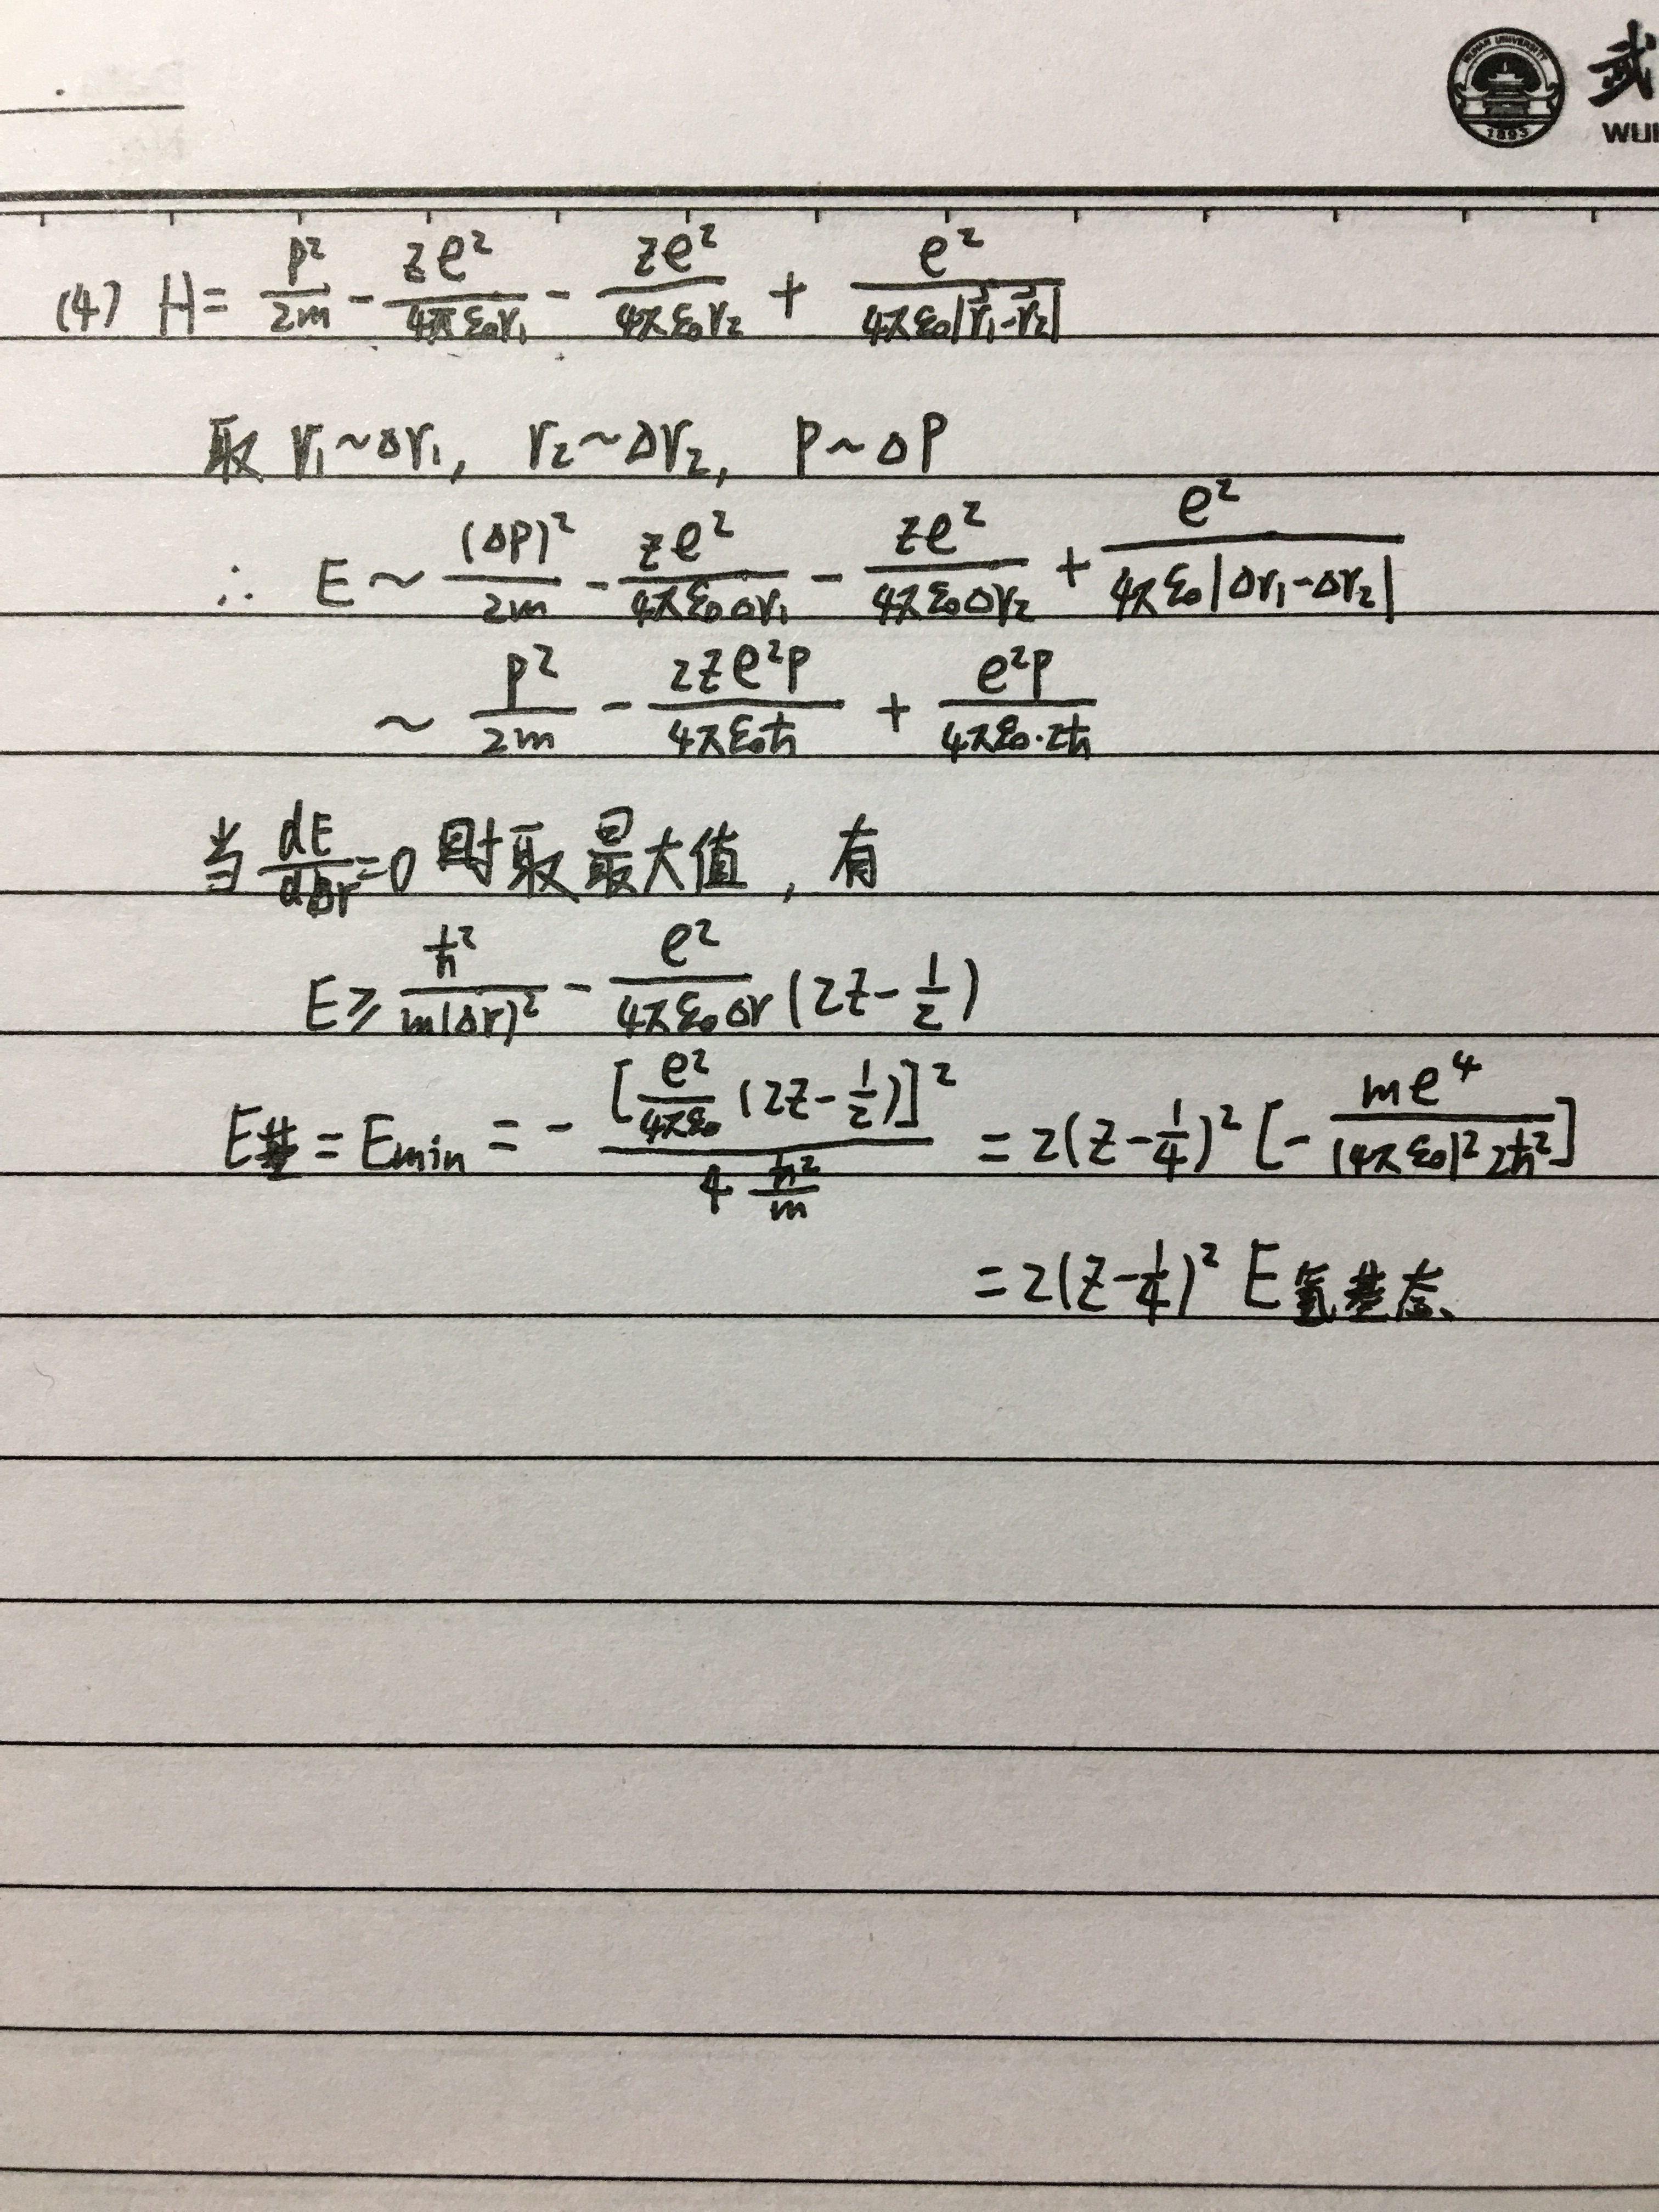 WUHAN UNIVERSITY
1893
武
WU
(4) H = p²/2m - ze²/4πε₀r₁ - ze²/4πε₀r₂ + e²/4πε₀|r⃗₁-r⃗₂|
取 r₁~Δr₁, r₂~Δr₂, P~ΔP
∴ E ~ (ΔP)²/2m - ze²/4πε₀Δr₁ - ze²/4πε₀Δr₂ + e²/4πε₀|Δr₁-Δr₂|
~ p²/2m - 2ze²p/4πε₀ħ + e²p/4πε₀·2ħ
当 dE/dΔr =0 时取最大值, 有
E ≥ ħ²/m(Δr)² - e²/4πε₀Δr (2z-1/2)
E基 = Emin = - [e²/4πε₀ (2z-1/2)]² / 4 ħ²/m = 2(z-1/4)² [- me⁴/(4πε₀)²2ħ²]
= 2(z-1/4)² E氢基态